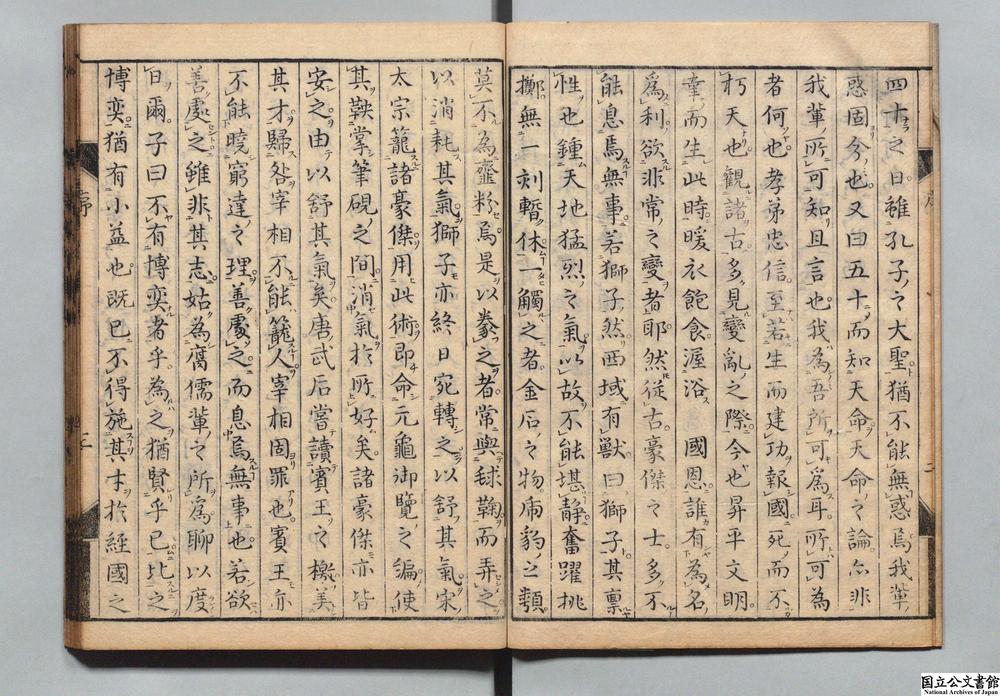 四十之日雖孔子之大聖猶不能無惑焉我輩
惑固今也又曰五十而知天命天命之論亦非
我輩所可知且言也我為吾所可為耳所可為
者何也孝弟忠信至若生而建功報國死而不
朽天也觀諸古多見變亂之際今也昇平文明
童而生此時暖衣飽食渥浴 國恩誰有為名
為利欲非常之變者耶然從古豪傑之士多不
能息焉無事若獅子然西域有獸曰獅子其稟
性也鍾天地猛烈之氣以故不能堪静奮躍挑
擲無一刻暫休一觸之者金石之物虎豹之類
莫不為虀粉焉是以豢之者常與毬鞠而弄之
以消耗其氣獅子亦終日宛轉之以舒其氣宋
太宗籠諸豪傑用此術即命元龜御覽之編使
其鞅掌筆硯之間消氣於所好矣諸豪傑亦皆
安之由以舒其氣矣唐武后嘗讀賓王之檄美
其才歸咎宰相不能籠人宰相固罪也賓王亦
不能曉窮達之理善處之而息焉無事也若欲
善處之雖非其志姑為腐儒輩之所為聊以度
日爾子曰不有博奕者乎為之猶賢乎已比之
博奕猶有小益也既已不得施其才於經國之
序
二
序
三
国立公文書館
National Archives of Japan